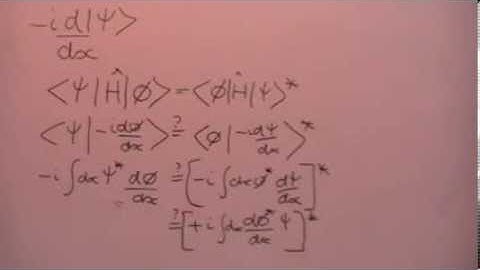 -i d|ψ>
dx
<ψ|Ĥ|ø> = <ø|Ĥ|ψ>*
<ψ|-i dø/dx> ?= <ø|-i dψ/dx>*
-i ∫dx ψ* dø/dx ?= [-i ∫dx ø* dψ/dx]*
?= [+i ∫dx dø*/dx ψ]*